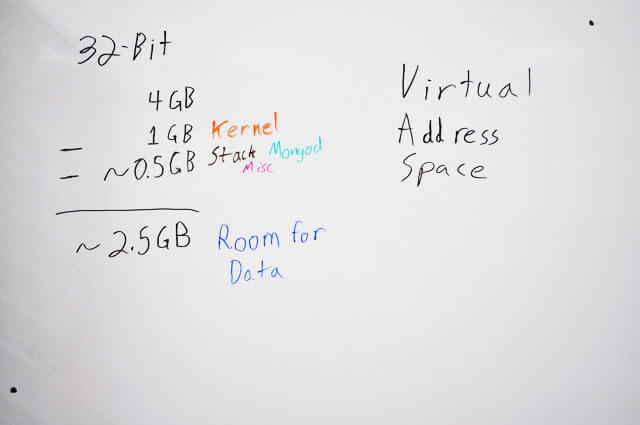 32-Bit
4GB
- 1GB Kernel
- ~0.5GB Stack Mongod
Misc
~2.5GB Room for
Data
Virtual
Address
Space